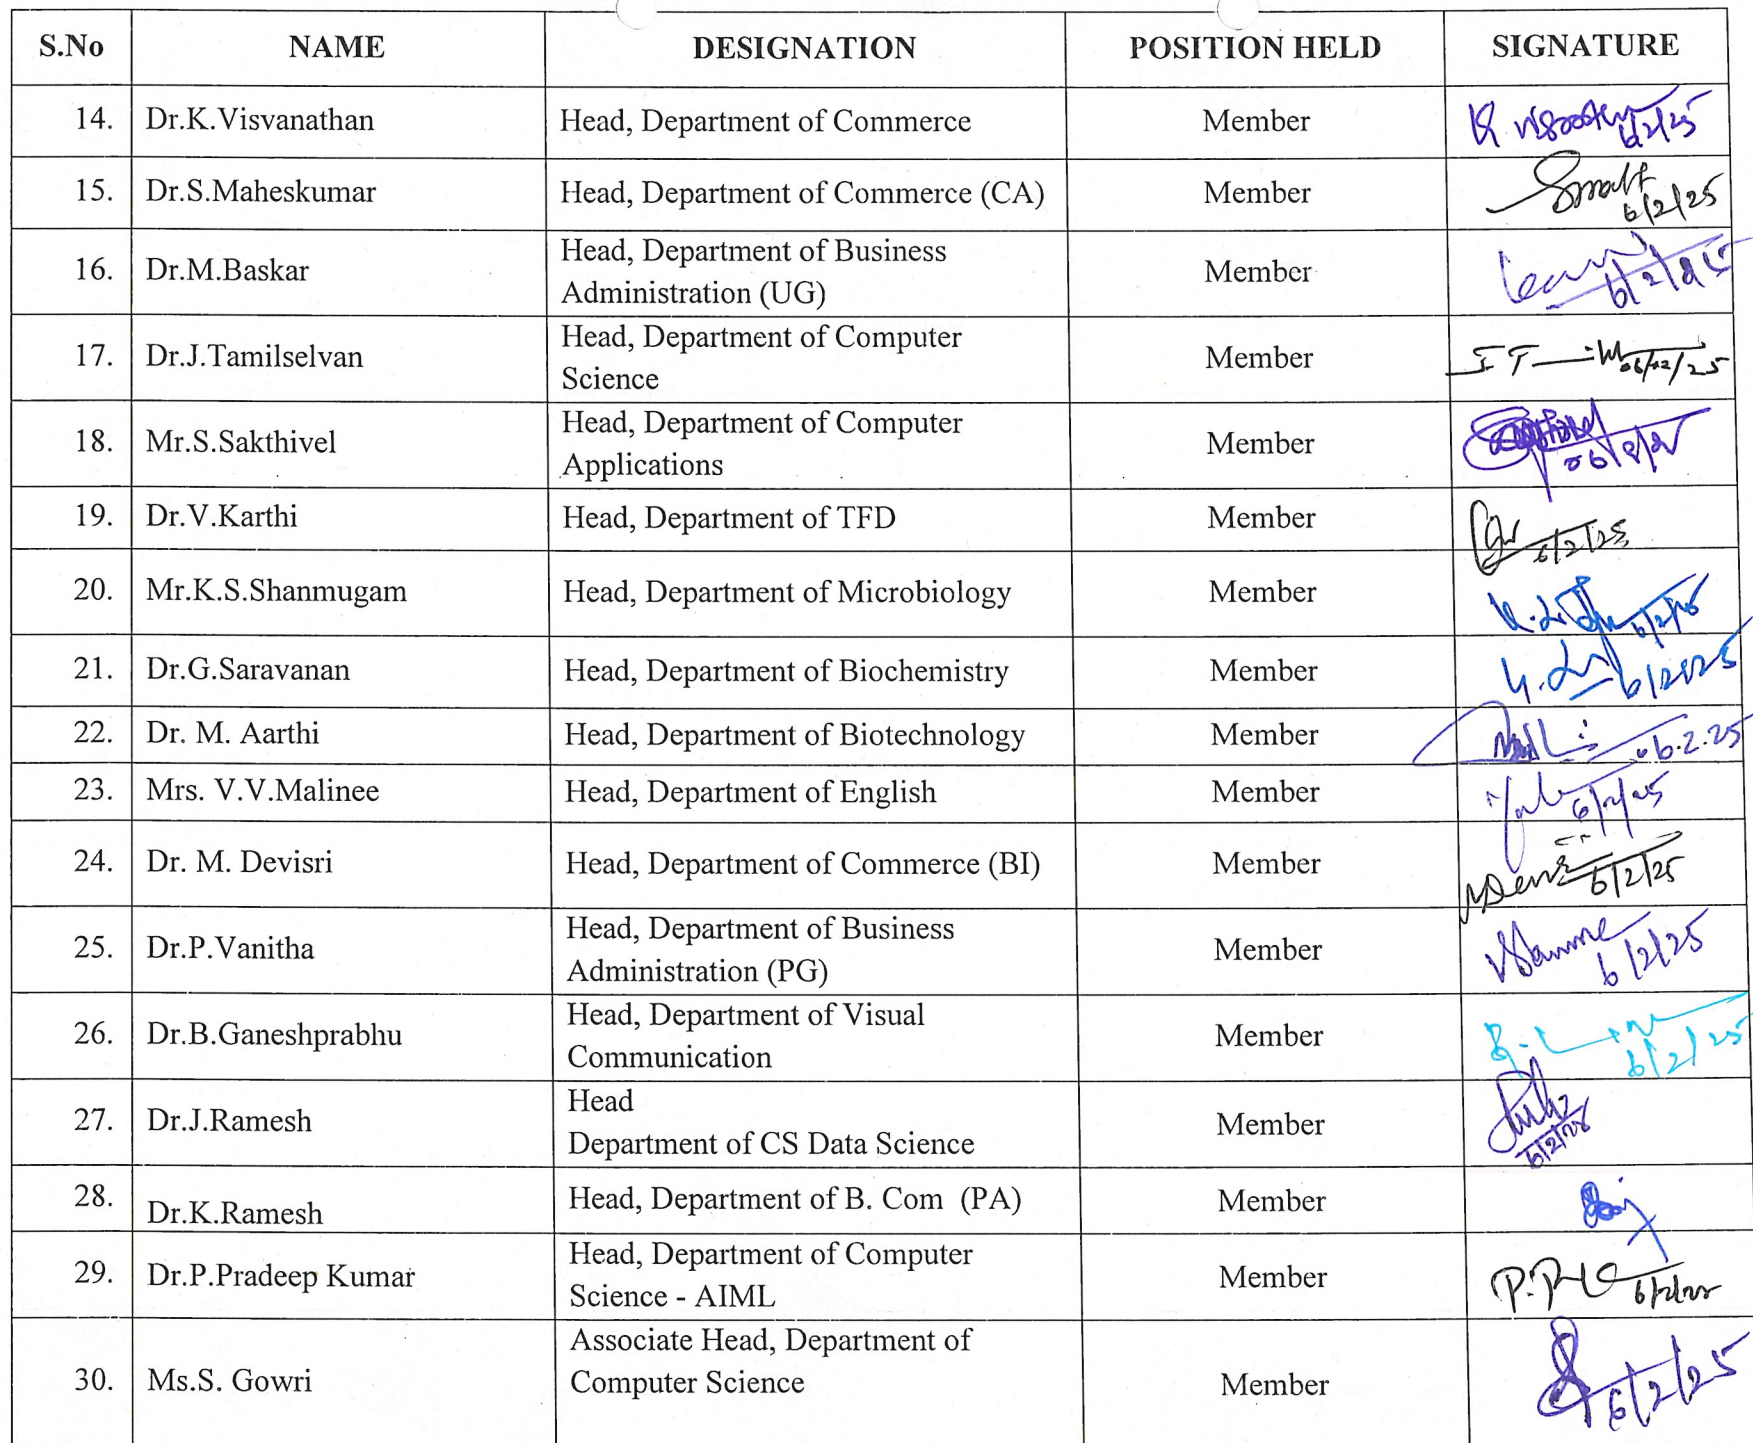 S.No NAME DESIGNATION POSITION HELD SIGNATURE
14. Dr.K.Visvanathan Head, Department of Commerce Member 6/2/25
15. Dr.S.Maheskumar Head, Department of Commerce (CA) Member 6/2/25
16. Dr.M.Baskar Head, Department of Business Member 6/2/25
Administration (UG)
17. Dr.J.Tamilselvan Head, Department of Computer Member 06/02/25
Science
18. Mr.S.Sakthivel Head, Department of Computer Member
Applications
19. Dr.V.Karthi Head, Department of TFD Member 6/2/25
20. Mr.K.S.Shanmugam Head, Department of Microbiology Member 6/2/25
21. Dr.G.Saravanan Head, Department of Biochemistry Member 6/2/2025
22. Dr. M. Aarthi Head, Department of Biotechnology Member 06.2.25
23. Mrs. V.V.Malinee Head, Department of English Member 6/2/25
24. Dr. M. Devisri Head, Department of Commerce (BI) Member 6/2/25
25. Dr.P.Vanitha Head, Department of Business Member 6/2/25
Administration (PG)
26. Dr.B.Ganeshprabhu Head, Department of Visual Member 6/2/25
Communication
27. Dr.J.Ramesh Head Member 6/2/25
Department of CS Data Science
28. Dr.K.Ramesh Head, Department of B. Com (PA) Member
29. Dr.P.Pradeep Kumar Head, Department of Computer Member
Science - AIML
30. Ms.S. Gowri Associate Head, Department of Member 6/2/25
Computer Science